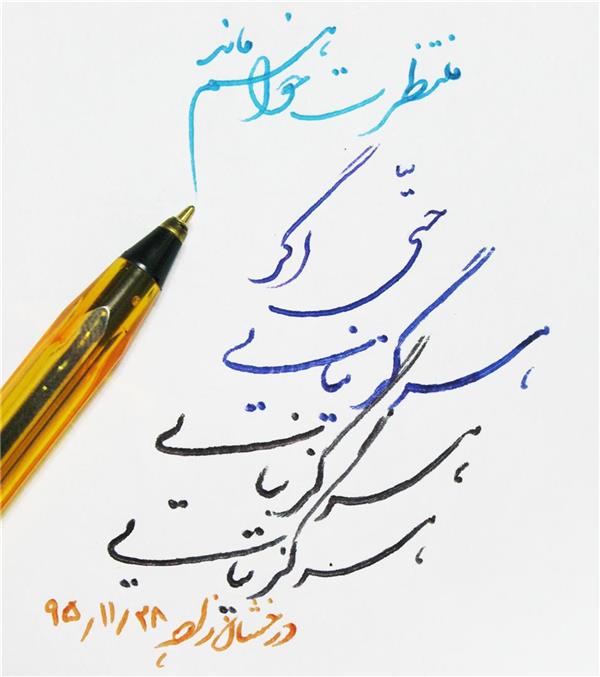 منتظرت خواهم ماند
حتّی اگر
هرگز نیائی
هرگز نیائی
هرگز نیائی
درخشان ۹۵/۱۱/۲۸